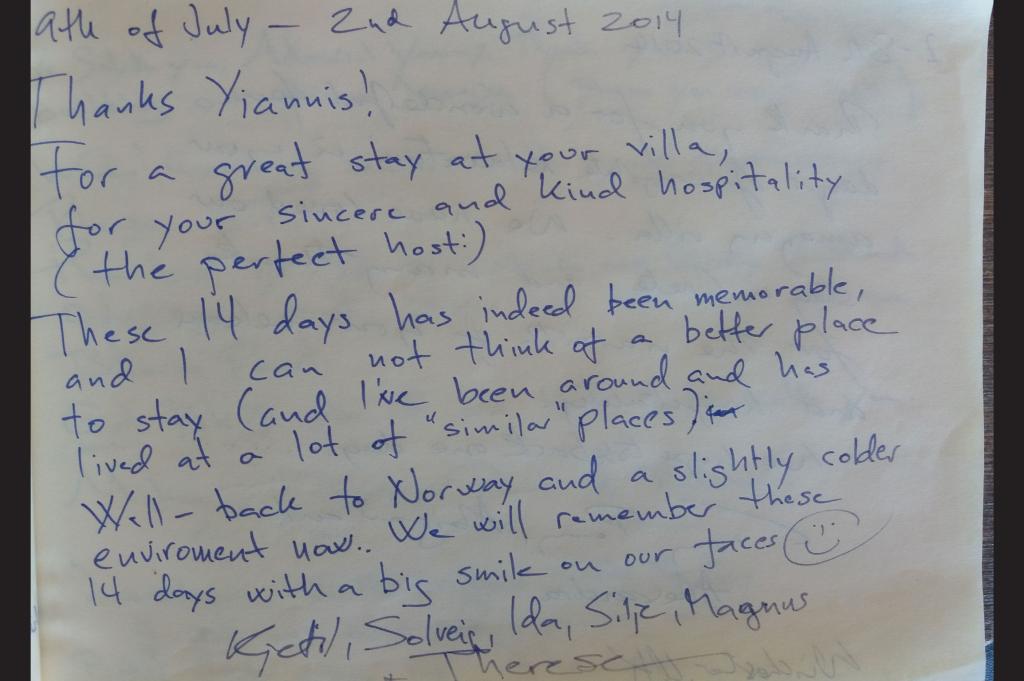 9th of July - 2nd August 2014
Thanks Yiannis!
For a great stay at your villa,
for your sincere and kind hospitality
(the perfect host:)
These 14 days has indeed been memorable,
and I can not think of a better place
to stay (and I've been around and has
lived at a lot of "similar" places)
Well - back to Norway and a slightly colder
enviroment now.. We will remember these
14 days with a big smile on our faces
Kjetil, Solveig, Ida, Silje, Magnus
Therese